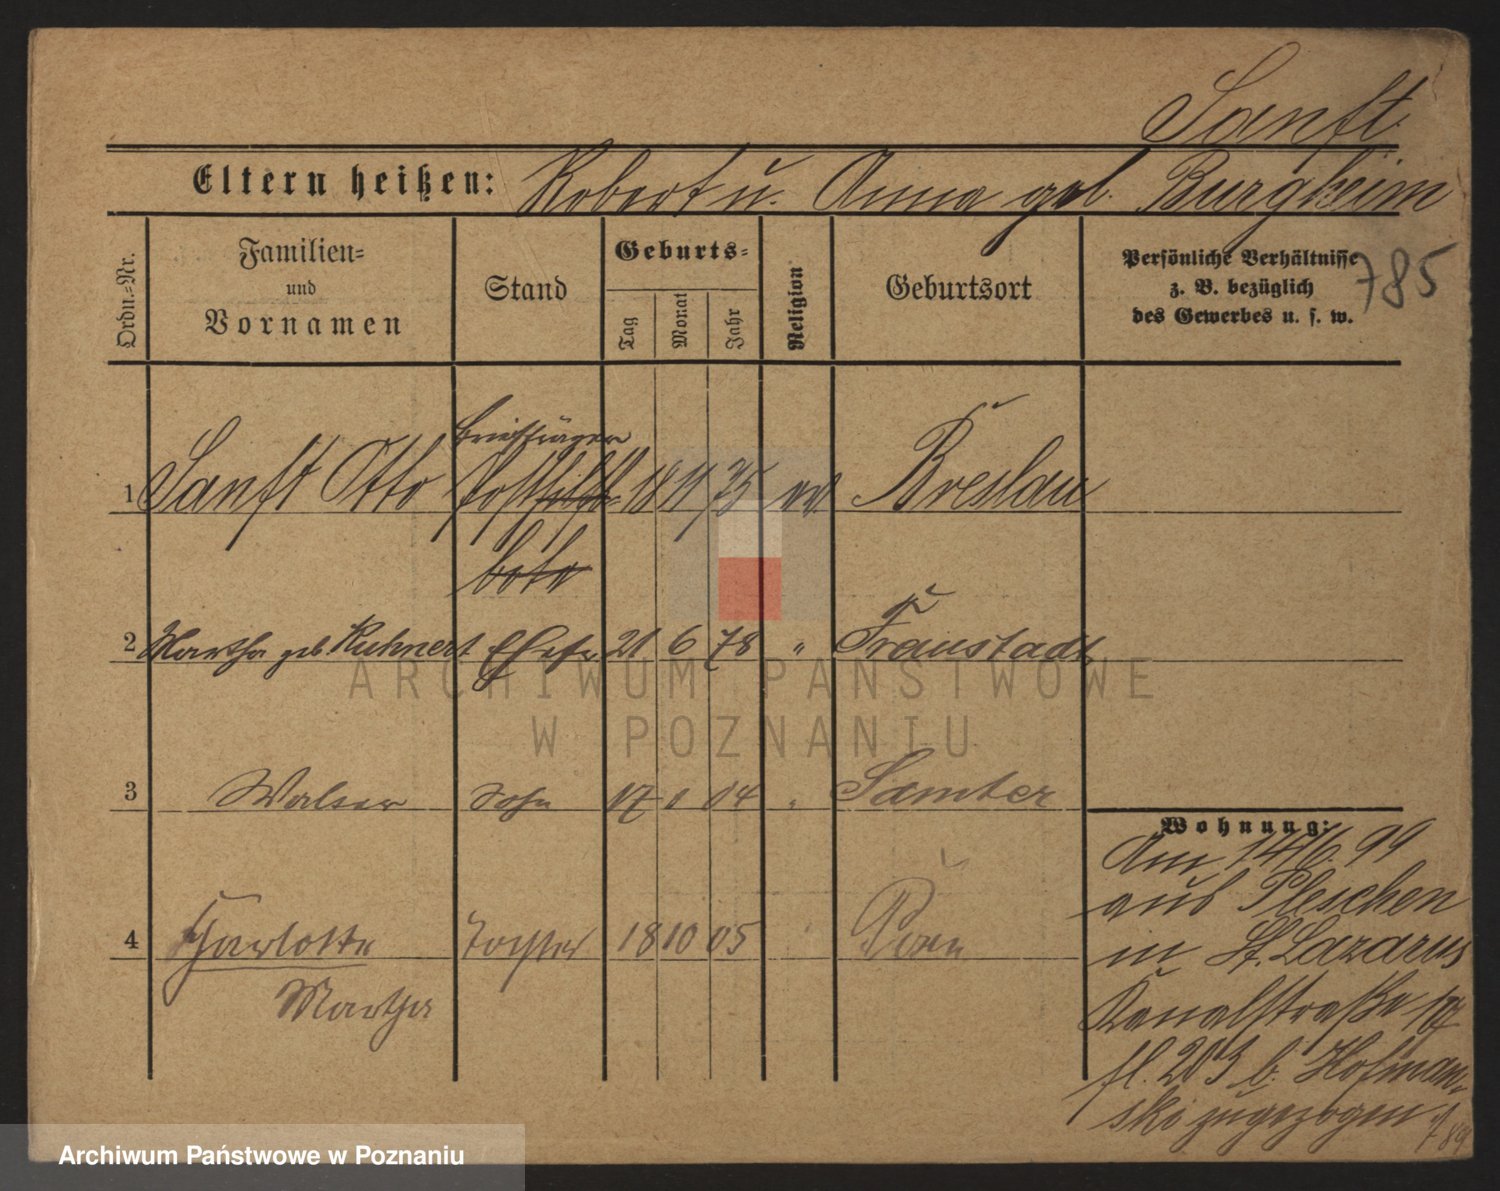 Sanft
Eltern heißen: Robert u. Anna geb. Burgheim
Ordn.-Nr.
Familien-
und
Vornamen
Stand
Geburts-
Tag
Monat
Jahr
Religion
Geburtsort
Persönliche Verhältnisse
z. B. bezüglich
des Gewerbes u. s. w.
785
Briefträger
1 Sanft Otto Posthilfs- 18 11 75 ev. Breslau
bote
2 Martha geb Kuhnert Ehefr. 21 6 78 " Fraustadt
3 Walter Sohn 17 1 04 " Samter
Wohnung:
Am 14/6. 99
aus Pleschen
in St. Lazarus
Kanalstraße 17
fl. 203 b. Hofman-
ski zugezogen
789
4 Charlotte Tochter 18 10 05 Posen
Martha
ARCHIWUM PAŃSTWOWE
W POZNANIU
Archiwum Państwowe w Poznaniu